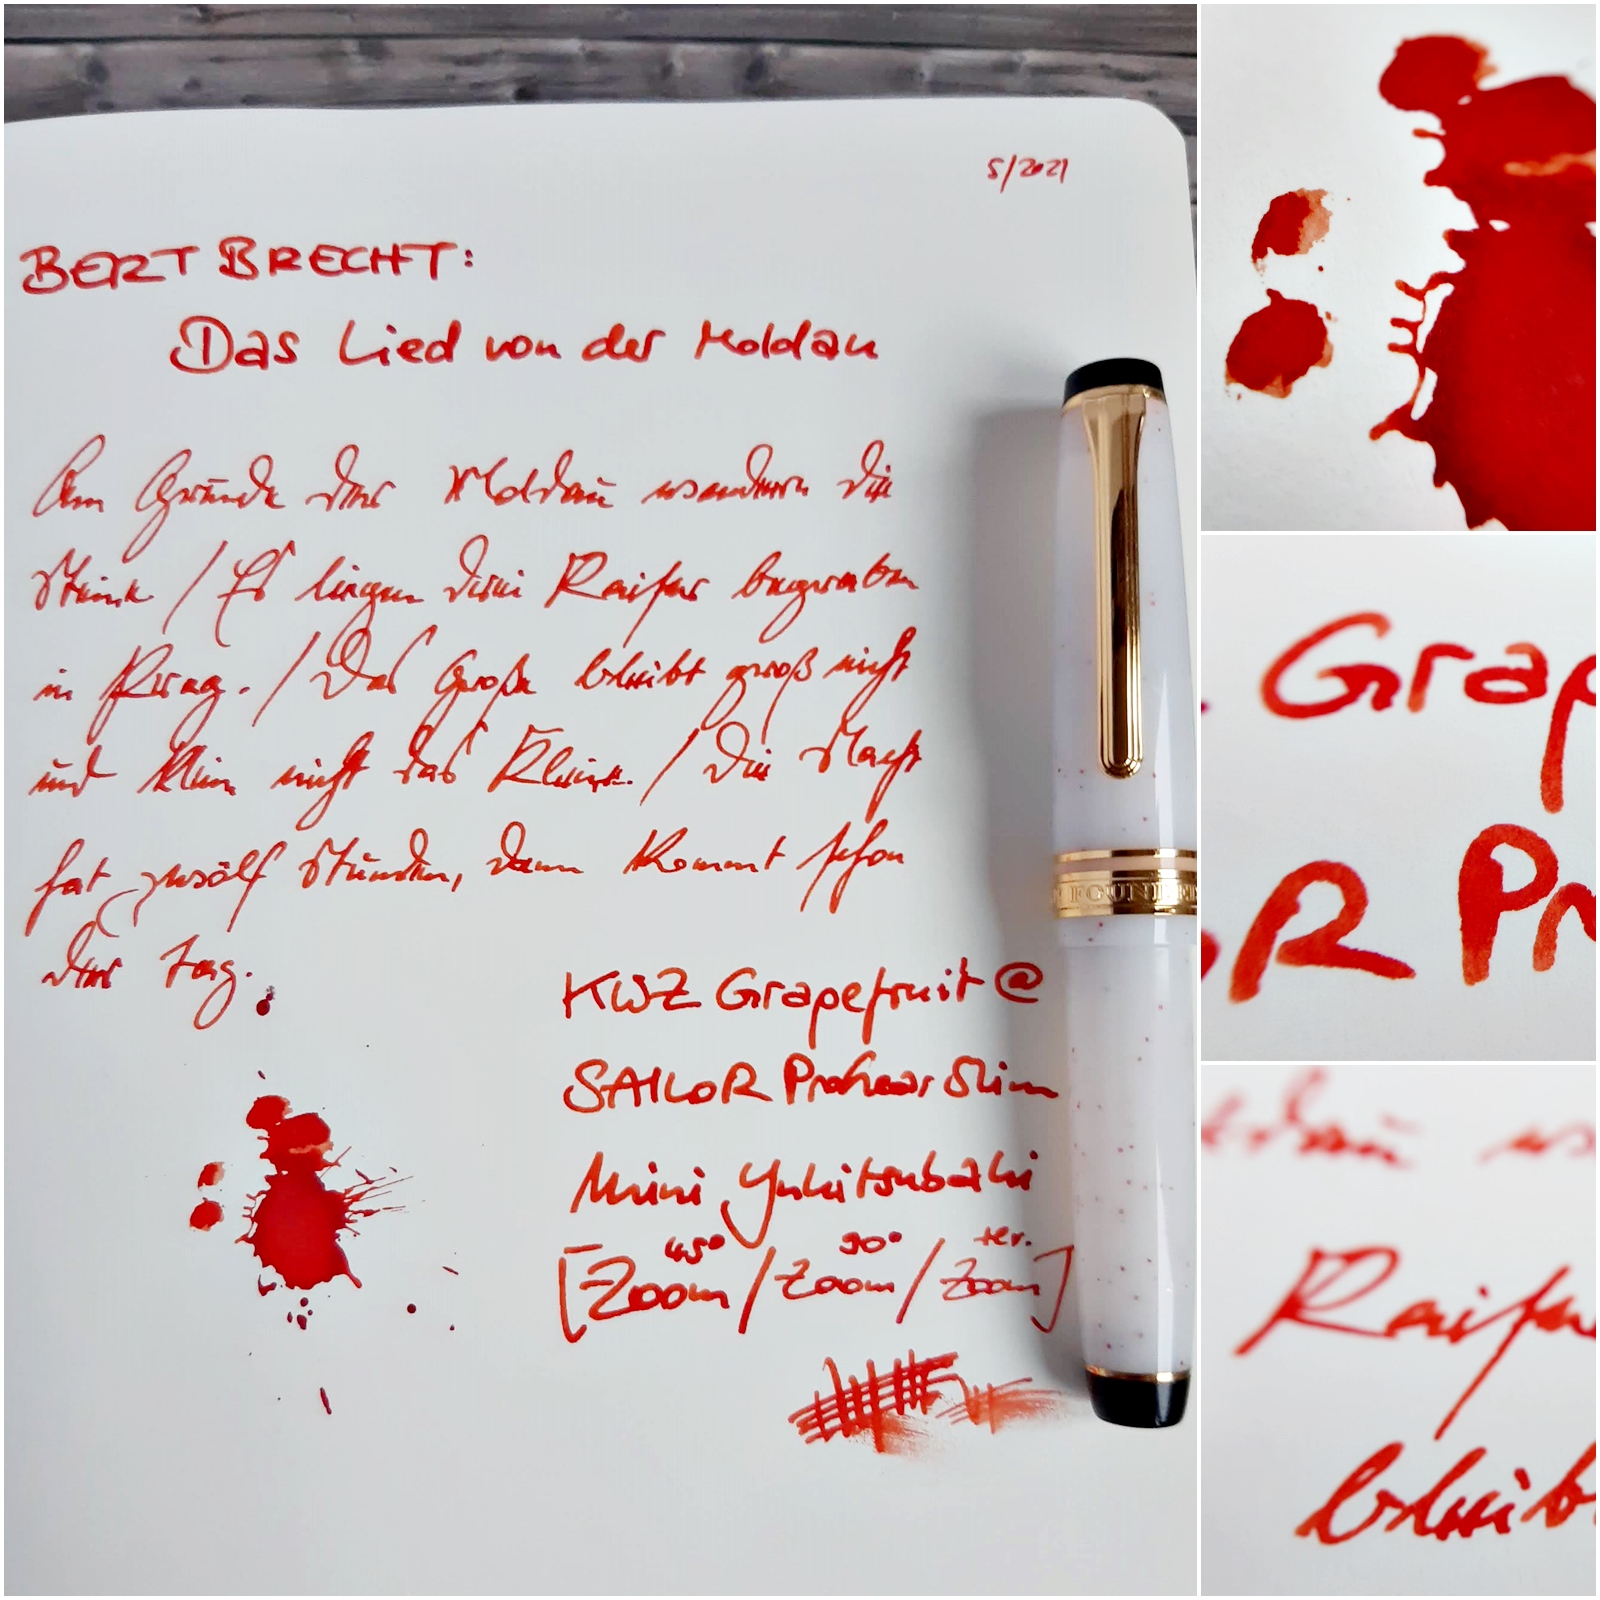 5/2021
BERT BRECHT:
Das Lied von der Moldau
Am Grunde der Moldau wandern die
Steine / Es liegen drei Kaiser begraben
in Prag. / Das Große bleibt groß nicht
und klein nicht das Kleine. / Die Nacht
hat zwölf Stunden, dann kommt schon
der Tag.
KWZ Grapefruit @
SAILOR ProGear Slim
Mini Yukitsubaki
45° 90° rev.
[Zoom / Zoom / Zoom]
FOUNDE
Grap
OR Pr
Moldau wa
Kaiser
bleibt